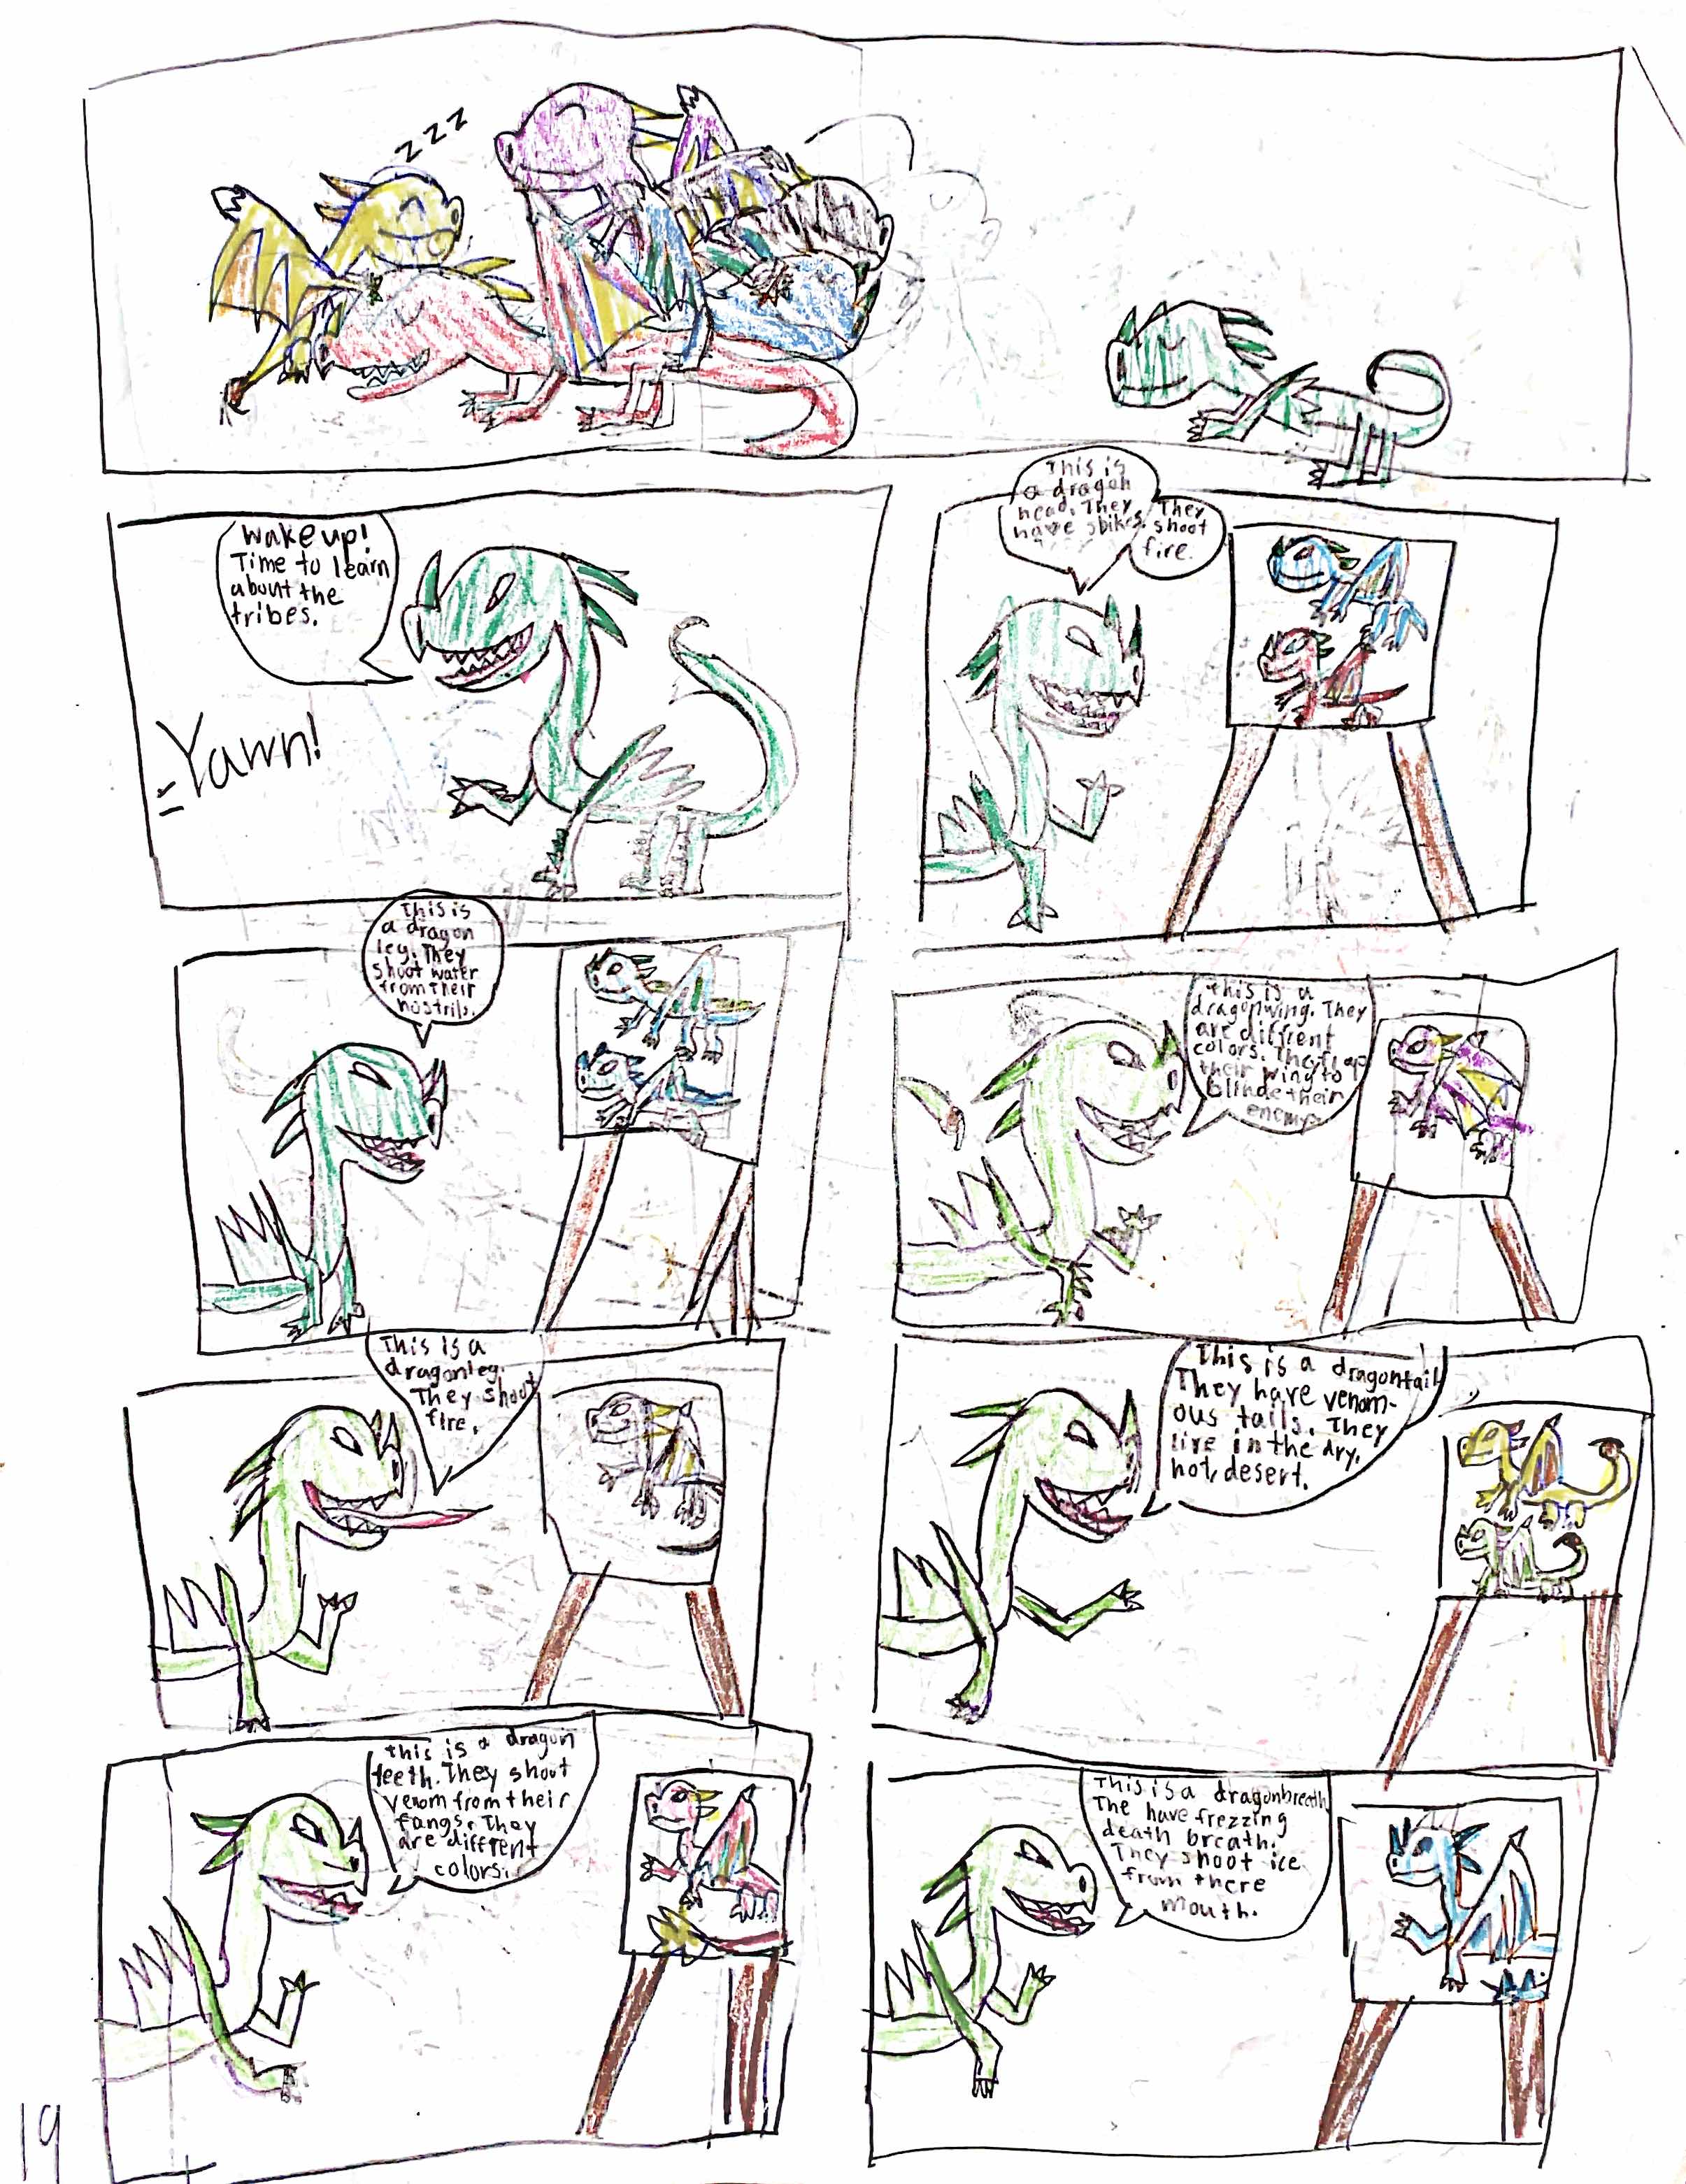 zzz
Wake up!
Time to learn
about the
tribes.
Yawn!
This is
a dragon
head. They
have sbikes.
They
shoot
fire.
This is
a dragon
leg. They
shoot water
from their
nostrils.
this is a
dragonwing. They
are diffrent
colors. They flap
their wing to
blinde their
enemy.
This is a
dragonleg.
They shout
fire.
This is a dragontail
They have venom-
ous tails. They
live in the dry,
hot, desert.
this is a dragon
teeth. They shout
venom from their
fangs. They
are diffrent
colors.
This is a dragonbreath
The have frezzing
death breath.
They shoot ice
from there
mouth.
19